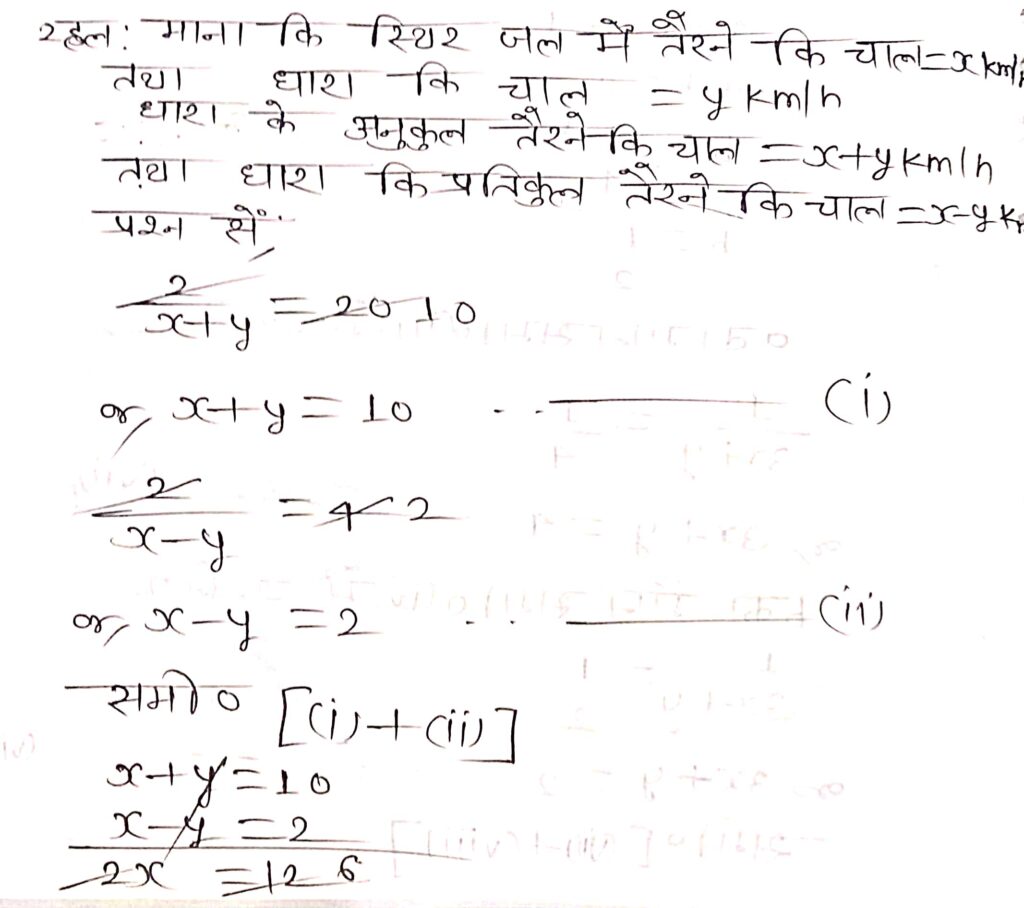 हल: माना कि स्थिर जल में तैरने कि चाल = x km/
तथा धारा कि चाल = y km/h
धारा के अनुकुल तैरने कि चाल = x+y km/h
तथा धारा कि प्रतिकुल तैरने कि चाल = x-y k
प्रश्न सें,
2/x+y = 20 10
or, x+y = 10 .. ——— (i)
2/x-y = 4 2
or, x-y = 2 ... ——— (ii)
समी० [(i)+(ii)]
x+y = 10
x-y = 2
2x = 12 6